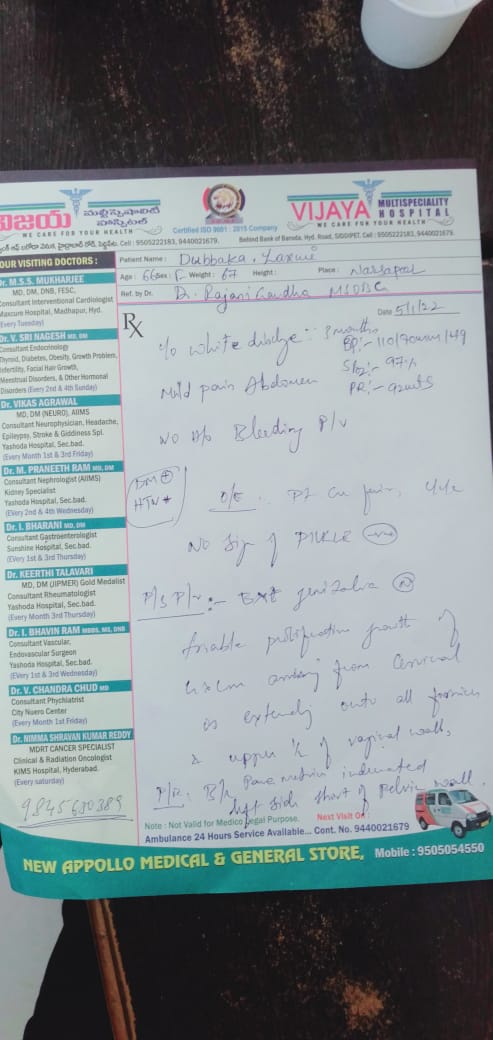 విజయ మల్టీస్పెషాలిటీ హాస్పిటల్
WE CARE FOR YOUR HEALTH
Certified ISO 9001 : 2015 Company
VIJAYA MULTISPECIALITY HOSPITAL
WE CARE FOR YOUR HEALTH
Cell : 9505222183, 9440021679.
Behind Bank of Baroda, Hyd. Road, SIDDIPET. Cell : 9505222183, 9440021679.
OUR VISITING DOCTORS :
Dr. M.S.S. MUKHARJEE
MD, DM, DNB, FESC,
Consultant Interventional Cardiologist
Maxcure Hospital, Madhapur, Hyd.
(Every Tuesday)
Dr. V. SRI NAGESH MD, DM
Consultant Endocrinology
Thyroid, Diabetes, Obesity, Growth Problem,
Infertility, Facial Hair Growth,
Menstrual Disorders, & Other Hormonal
Disorders (Every 2nd & 4th Sunday)
Dr. VIKAS AGRAWAL
MD, DM (NEURO), AIIMS
Consultant Neurophysician, Headache,
Epilepsy, Stroke & Giddiness Spl.
Yashoda Hospital, Sec.bad.
(Every Month 1st & 3rd Friday)
Dr. M. PRANEETH RAM MD, DM
Consultant Nephrologist (AIIMS)
Kidney Specialist
Yashoda Hospital, Sec.bad.
(EVery 2nd & 4th Wednesday)
Dr. I. BHARANI MD, DM
Consultant Gastroenterologist
Sunshine Hospital, Sec.bad.
(EVery 1st & 3rd Thursday)
Dr. KEERTHI TALAVARI
MD, DM (JIPMER) Gold Medalist
Consultant Rheumatologist
Yashoda Hospital, Sec.bad.
(Every Month 3rd Thursday)
Dr. I. BHAVIN RAM MBBS, MS, DNB
Consultant Vascular,
Endovascular Surgeon
Yashoda Hospital, Sec.bad.
(EVery 1st & 3rd Wednesday)
Dr. V. CHANDRA CHUD MD
Consultant Phychiatrist
City Nuero Center
(Every Month 1st Friday)
Dr. NIMMA SHRAVAN KUMAR REDDY
MDRT CANCER SPECIALIST
Clinical & Radiation Oncologist
KIMS Hospital, Hyderabad.
(Every saturday)
Patient Name : Dubbaka, Laxmi
Age : 66 Sex : F Weight : 67 Height : Place : Narsapur
Ref. by Dr. Dr. Rajani
Date 5/1/22
Rx
c/o white : 3 months
BP:- 110/70
97%
PR:-
Mild pain Abdomen
No H/o Bleeding P/V
DM +
HTN +
O/E. Pt fair,
No Sign of PICKLE
P/S P/V :- genitalia N
friable proliferative growth of
arising from Cervical
os extending onto all fornices
& upper of vaginal wall,
P/R. B/L Parametrium indurated
left side short of pelvic wall
Note : Not Valid for Medico Legal Purpose. Next Visit On :
Ambulance 24 Hours Service Available... Cont. No. 9440021679
NEW APPOLLO MEDICAL & GENERAL STORE, Mobile : 9505054550